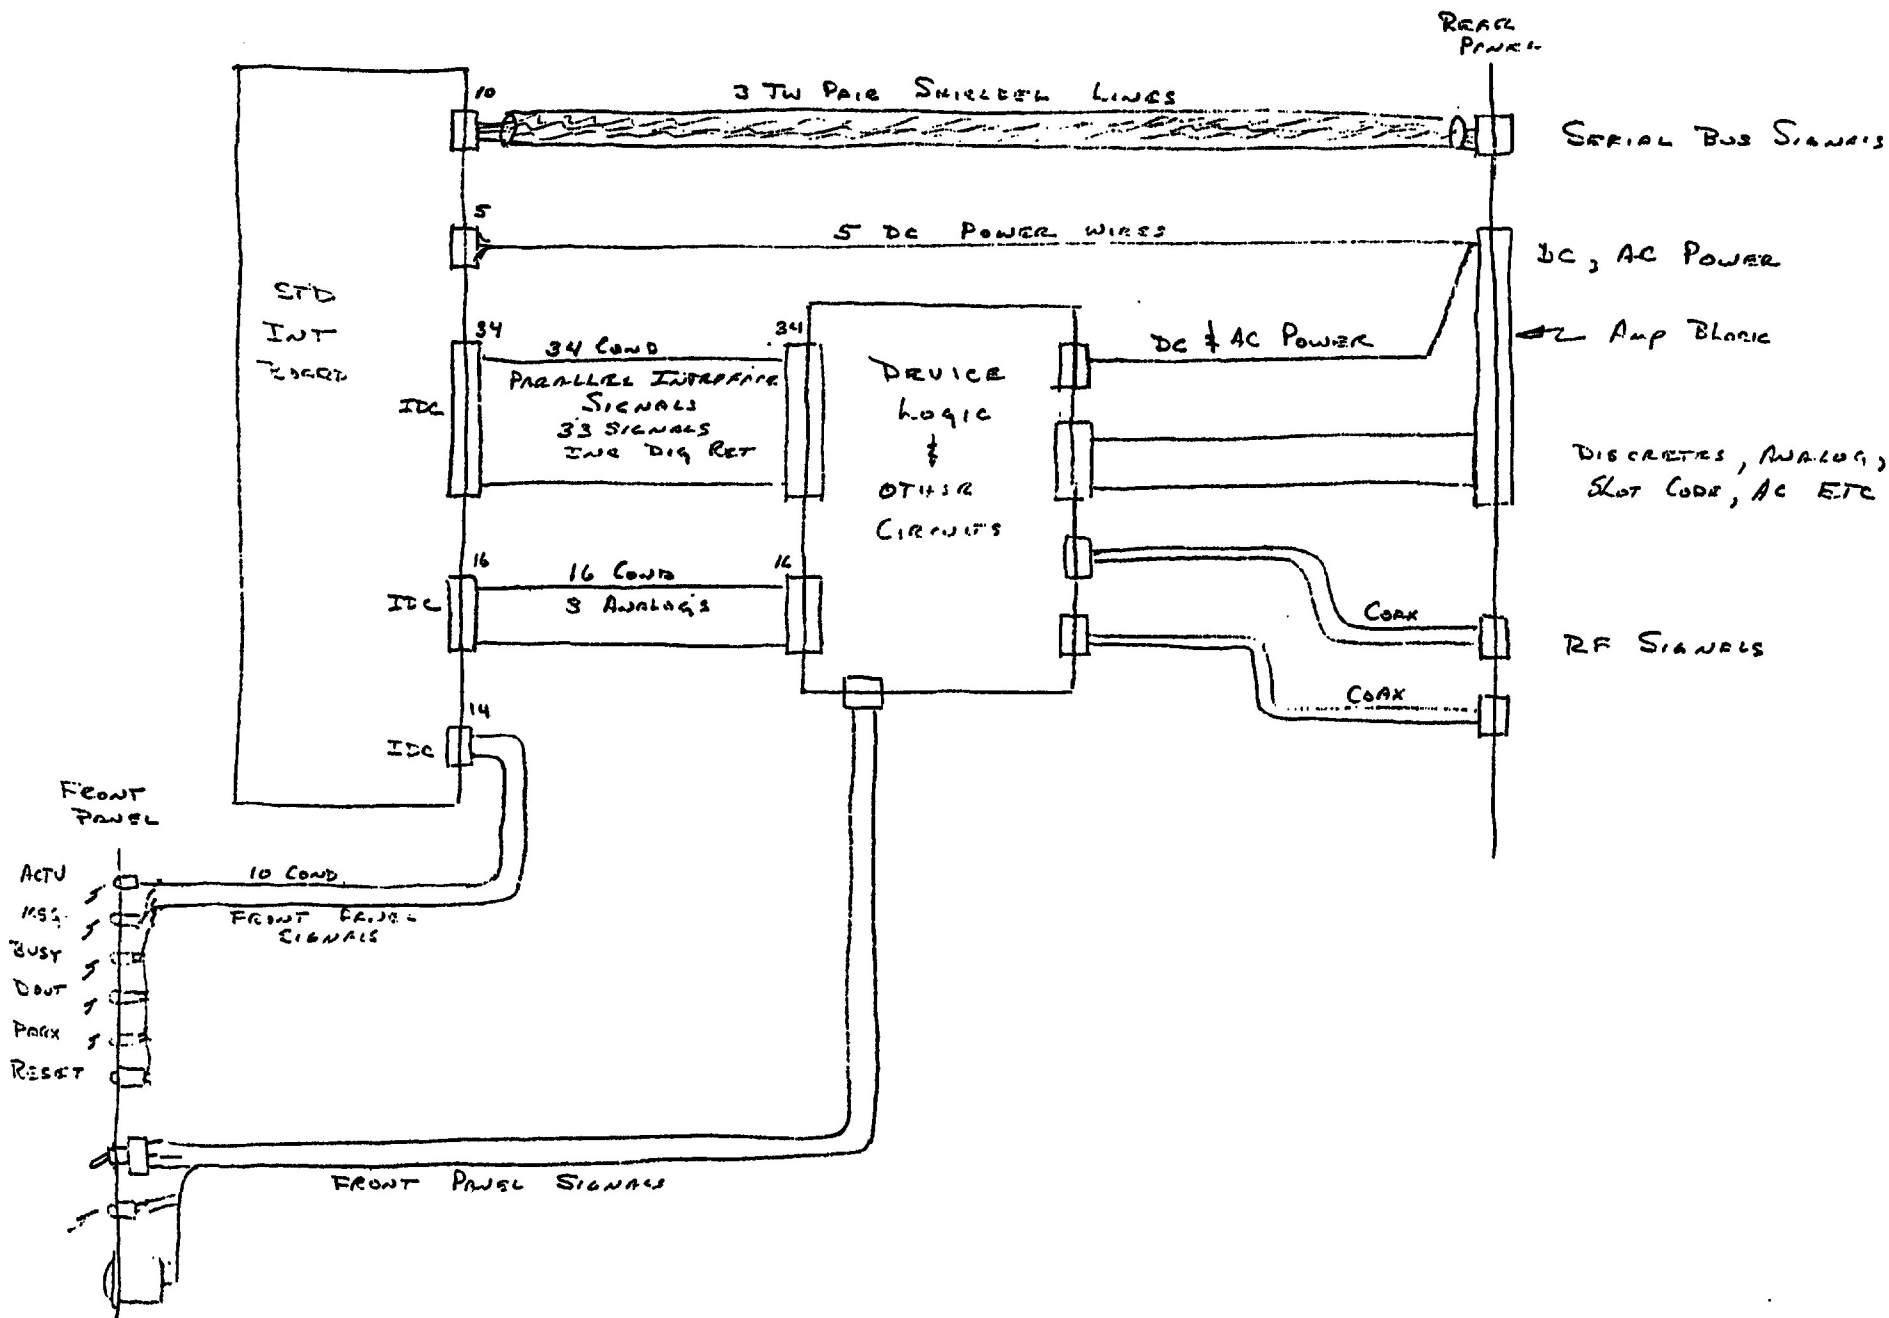 REAR
PANEL
10
3 TW PAIR SHIELDED LINES
SERIAL BUS SIGNALS
5
5 DC POWER WIRES
DC, AC POWER
STD
INT
BOARD
34
34 COND
PARALLEL INTERFACE
SIGNALS
33 SIGNALS
INC DIG RET
IDC
34
DEVICE
LOGIC
&
OTHER
CIRCUITS
DC & AC POWER
AMP BLOCK
DISCRETES, ANALOG,
SLOT CODE, AC ETC
16
16 COND
8 ANALOGS
IDC
16
COAX
RF SIGNALS
COAX
14
IDC
FRONT
PANEL
ACTV
MSG
BUSY
DOUT
PARX
RESET
10 COND
FRONT PANEL
SIGNALS
FRONT PANEL SIGNALS